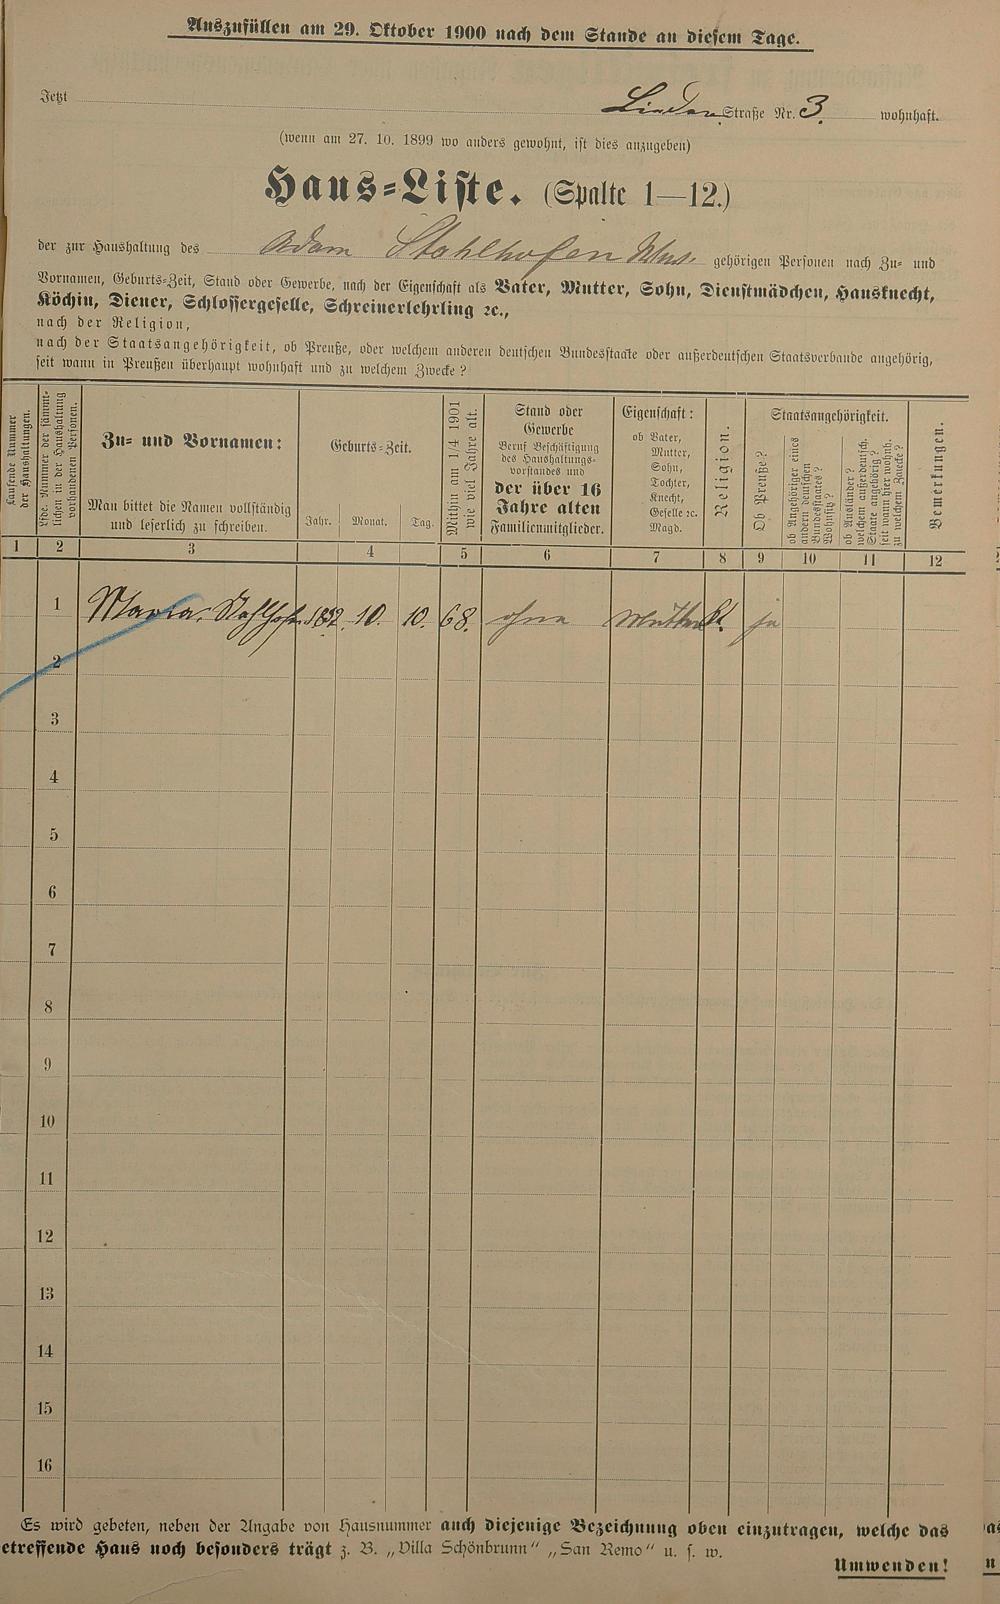 Auszufüllen am 29. Oktober 1900 nach dem Stande an diesem Tage.
Jetzt Linden Straße Nr. 3. wohnhaft.
(wenn am 27. 10. 1899 wo anders gewohnt, ist dies anzugeben)
Haus-Liste. (Spalte 1—12.)
der zur Haushaltung des Adam Stahlhofen Wwe. gehörigen Personen nach Zu- und
Vornamen, Geburts-Zeit, Stand oder Gewerbe, nach der Eigenschaft als Vater, Mutter, Sohn, Dienstmädchen, Hausknecht,
Köchin, Diener, Schlossergeselle, Schreinerlehrling ꝛc.,
nach der Religion,
nach der Staatsangehörigkeit, ob Preuße, oder welchem anderen deutschen Bundesstaate oder außerdeutschen Staatsverbande angehörig,
seit wann in Preußen überhaupt wohnhaft und zu welchem Zwecke?
Laufende Nummer
der Haushaltungen.
Lfde. Nummer der sämmt-
lichen in der Haushaltung
vorhandenen Personen.
Zu- und Vornamen:
Man bittet die Namen vollständig
und leserlich zu schreiben.
Geburts-Zeit.
Jahr. Monat. Tag.
Mithin am 1/4 1901
wie viel Jahre alt.
Stand oder
Gewerbe
Beruf Beschäftigung
des Haushaltungs-
vorstandes und
der über 16
Jahre alten
Familienmitglieder.
Eigenschaft:
ob Vater,
Mutter,
Sohn,
Tochter,
Knecht,
Geselle ꝛc.
Magd.
Religion.
Staatsangehörigkeit.
Ob Preuße?
ob Angehöriger eines
andern deutschen
Bundesstaates?
Wohnsitz?
ob Ausländer?
welchem außerdeutsch.
Staate angehörig?
seit wann hier wohnh.
zu welchem Zwecke?
Bemerkungen.
1 2 3 4 5 6 7 8 9 10 11 12
1 Maria Stahlhofen 1832. 10. 10. 68. ohne Mutter kt. ja
2
3
4
5
6
7
8
9
10
11
12
13
14
15
16
Es wird gebeten, neben der Angabe von Hausnummer auch diejenige Bezeichnung oben einzutragen, welche das
etreffende Haus noch besonders trägt z. B. „Villa Schönbrunn“ „San Remo“ u. s. w.
Umwenden!